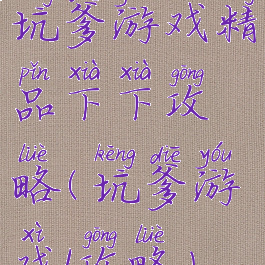 坑爹游戏精
pǐn xià xià gōng
品下下攻
lüè kēng diē yóu
略(坑爹游
xì gōng lüè
戏(攻略)